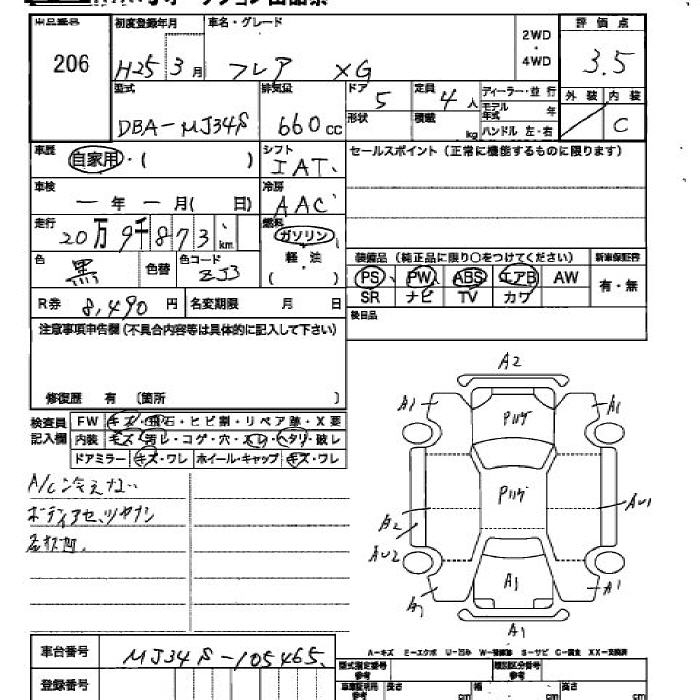 出品番号 初度登録年月 車名・グレード 2WD・4WD 評価点
206 H25 3月 フレア XG 3.5
型式 排気量 ドア 5 定員 4人 ディーラー・並行 外装 内装
DBA-MJ34S 660cc 形状 積載 kg モデル年式 年 ハンドル 左・右 C
車歴 自家用・( ) シフト IAT セールスポイント（正常に機能するものに限ります）
車検 ー年ー月( 日) 冷房 AAC
走行 20万9千873km 燃料 ガソリン
軽・油
( )
色 黒 色替 色コード ZJ3
装備品（純正品に限り○をつけてください） 新車保証書
PS PW ABS エアB AW 有・無
SR ナビ TV カワ
R券 8,490円 名変期限 月 日 後日品
注意事項申告欄(不具合内容等は具体的に記入して下さい)
修復歴 有 〔箇所 〕
検査員記入欄 FW キズ・飛石・ヒビ割・リペア跡・X要
内装 キズ・汚レ・コゲ・穴・スレ・ヘタリ・破レ
ドアミラー キズ・ワレ ホイール・キャップ キズ・ワレ
A/C冷えない
ボディアセ、ツヤナシ
A2
A1 A1
Pハゲ
Pハゲ
A2 AU1
AU2
A1 A1 A1
A1
A-キズ E-エクボ U-凹み W-補修跡 S-サビ C-腐食 XX-交換済
車台番号 MJ34S-105465
型式指定番号参考 類別区分番号参考
登録番号 車庫証明用参考 長さ cm 幅 cm 高さ cm